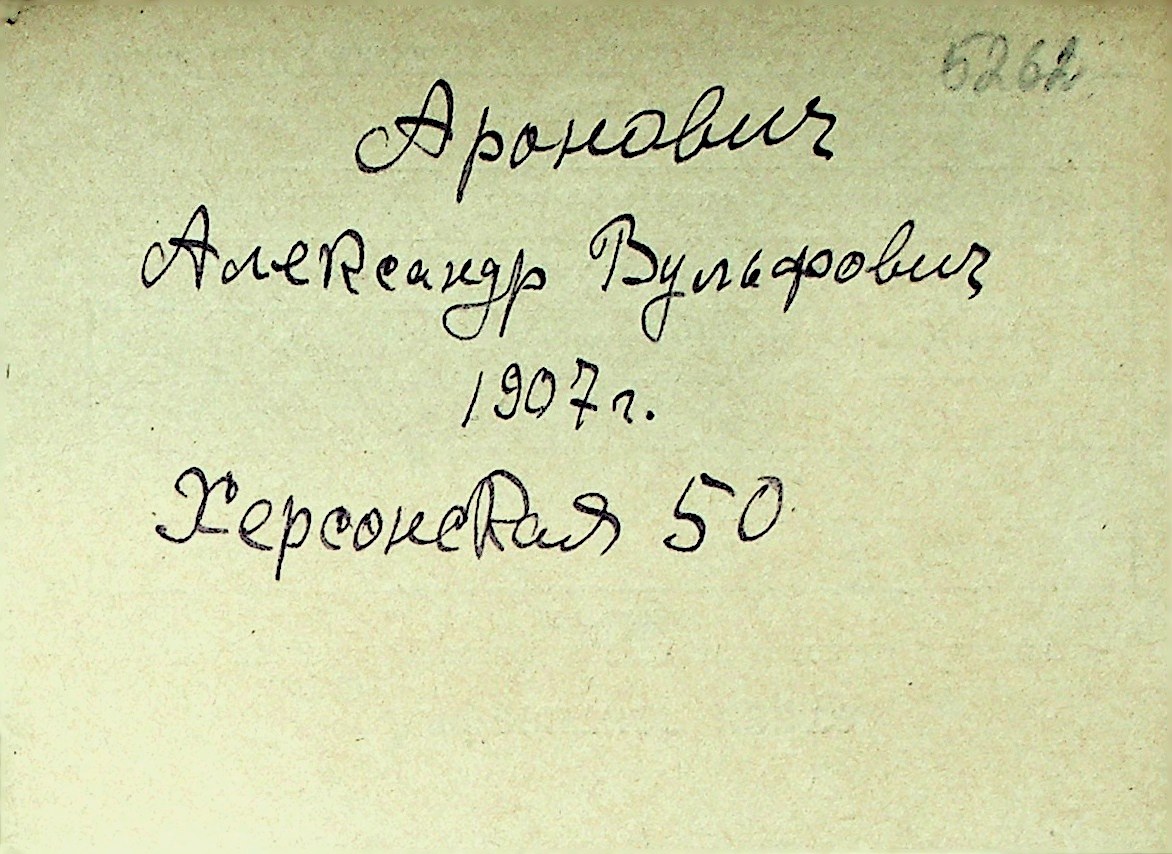 5262
Аронович
Александр Вульфович
1907г.
Херсонская 50